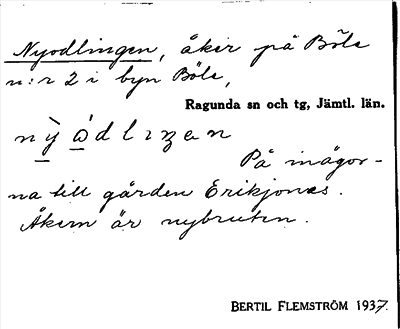 Nyodlingen, åker på Böle
n:r 2 i byn Böle,
Ragunda sn och tg, Jämtl. län.
nỳ ὼdlıŋen
På inägor-
na till gården Erikjonæs.
Åkern är nybruten.
BERTIL FLEMSTRÖM 1937.